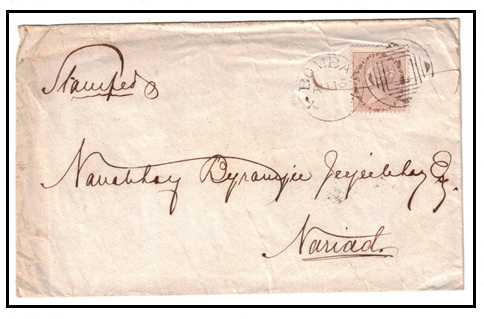 Stamped
BOMBA
Nanabhoy Byramjee Jejeebhoy Esq.
Nariad.